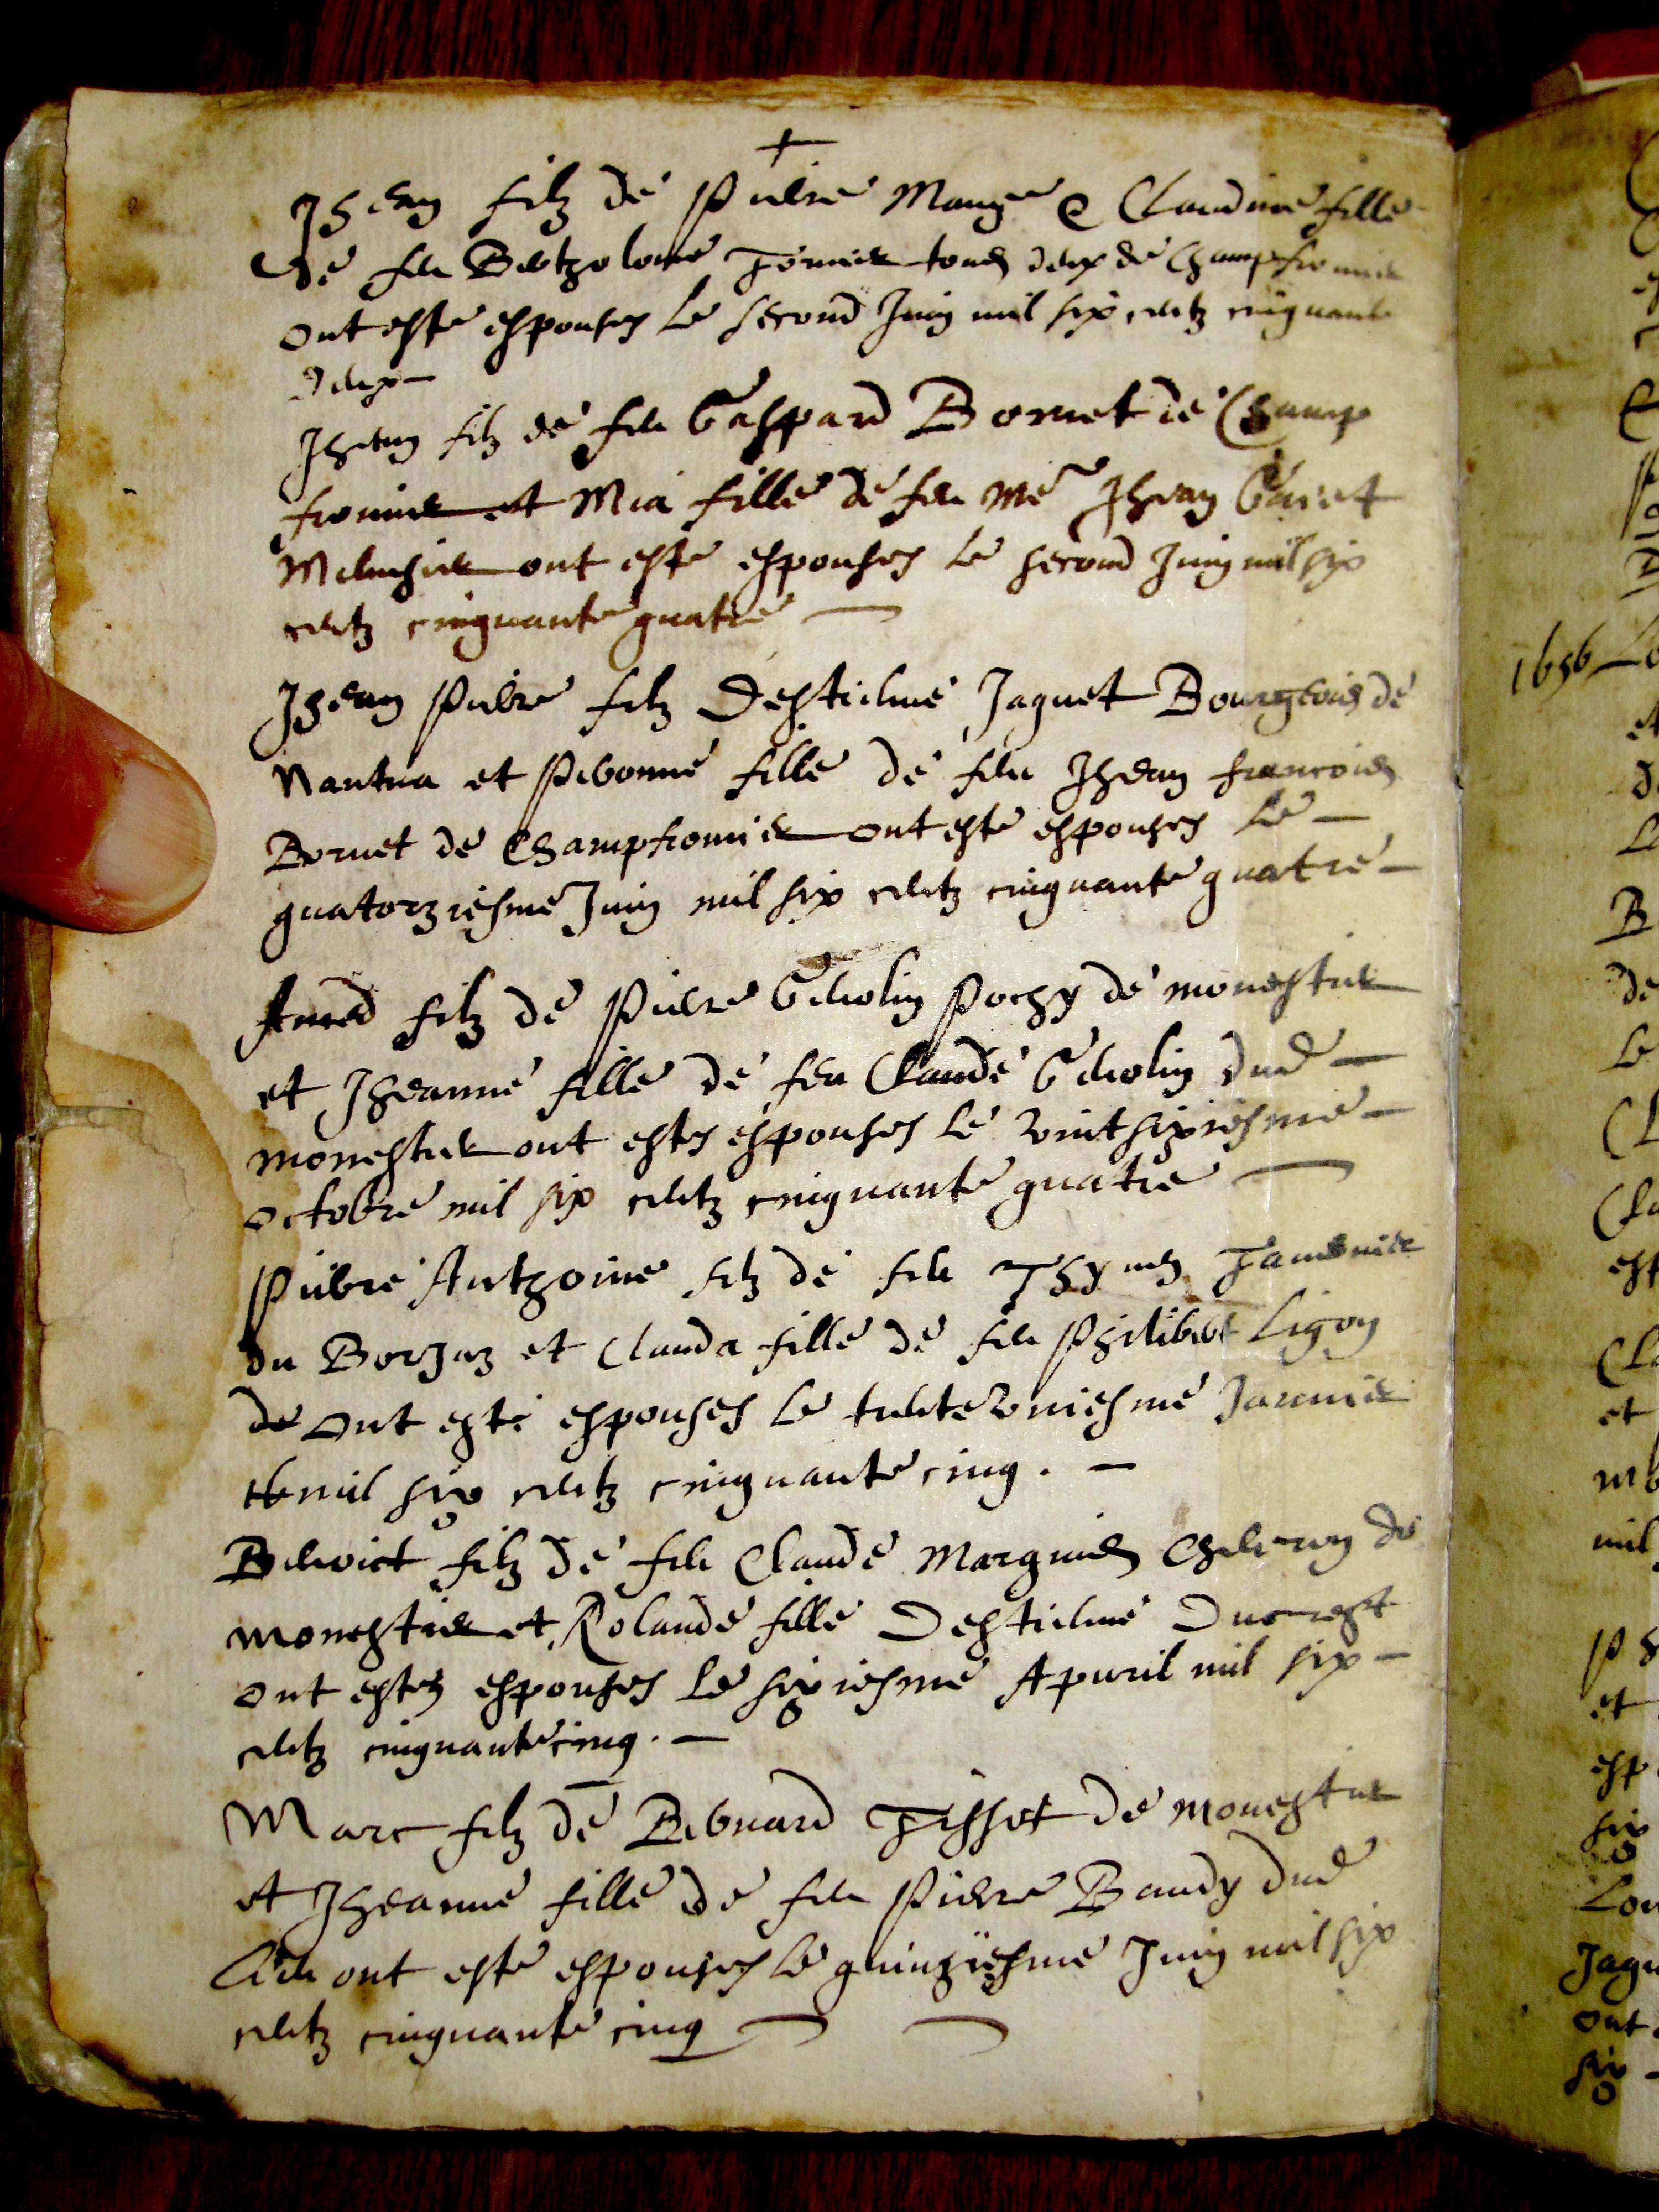 +
Jhean filz de Pierre Mange & Claudine fille
de feu Bertholome Tornier tous deux de Champfromier
ont este espouses le second Juin mil six centz cinquante
deux -
Jhean filz de feu Gaspard Bornet de Champ
fromier et Mia fille de feu me Jhean Gavet
ont este espouses le second Juin mil six
centz cinquante quatre
Jhean Pierre filz Destienne Jaquet Bourgeois de
Nantua et Pernonne fille de feu Jhean francois
Bornet de Champfromier ont este espouses le -
quatorziesme Juin mil six centz cinquante quatre -
Amed filz de Pierre Genolin Pochy de monestier
et Jheanne fille de feu Claude Genolin dud -
monestier ont estes espouses le vint sixiesme -
octobre mil six centz cinquante quatre
Pierre Anthoine filz de feu Thyven Tavernier
du Borjaz et Clauda fille de feu Philibert Ligon
de ont este espouses le trente vniesme Janvier
mil six centz cinquante cinq. -
Benoict filz de feu Claude Marquis de
monestier et Rolande fille Destienne Ducrest
ont estez espouses le sixiesme Apvril mil six -
centz cinquante cinq. -
Marc filz de Bernard Tissot de monestier
et Jheanne fille de feu Pierre Baudy dud
lieu ont este espouses le quinziesme Juin mil six
centz cinquante cinq
1656